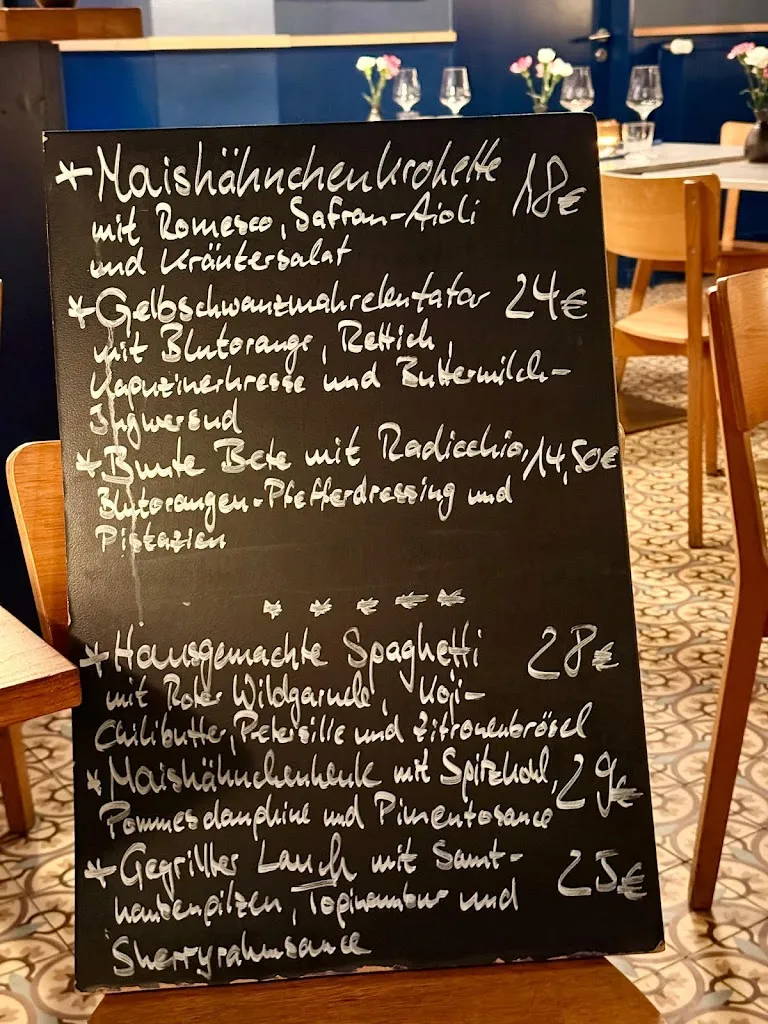 * Maishähnchenkrokette 18€
mit Romesco, Safran-Aioli
und Kräutersalat
* Gelbschwanzmakrelentatar 24€
mit Blutorange, Rettich,
Kapuzinerkresse und Buttermilch-
Ingwersud
* Bunte Bete mit Radicchio, 14,50€
Blutorangen-Pfefferdressing und
Pistazien
* * * * *
* Hausgemachte Spaghetti 28€
mit Roter Wildgarnele, Koji-
Chilibutter, Petersilie und Zitronenbrösel
* Maishähnchenkeule mit Spitzkohl, 29€
Pommesdauphine und Pimentosauce
* Gegrillter Lauch mit Samt- 25€
haubenpilzen, Topinambur und
Sherryrahmsauce